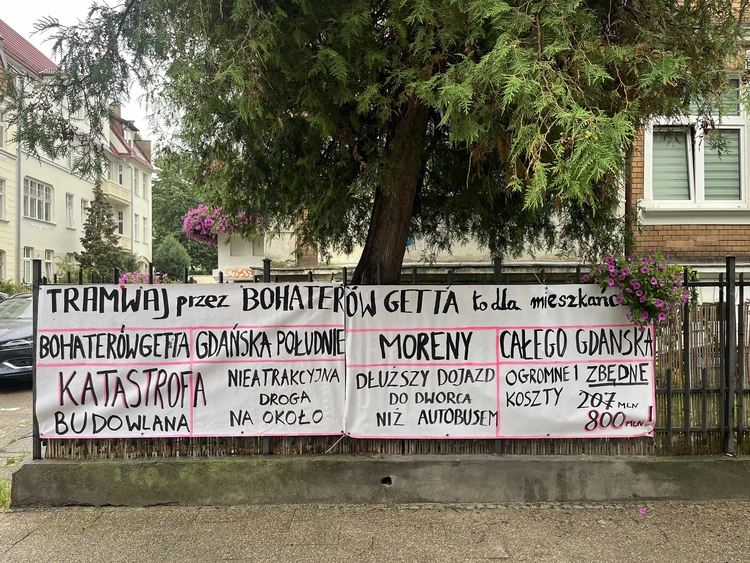 TRAMWAJ przez BOHATERÓW GETTA to dla
BOHATERÓW GETTA
KATASTROFA
BUDOWLANA
GDAŃSKA POŁUDNIE
NIEATRAKCYJNA
DROGA
NA OKOŁO
MORENY
DŁUŻSZY DOJAZD
DO DWORCA
NIŻ AUTOBUSEM
CAŁEGO GDAŃSKA
OGROMNE I ZBĘDNE
KOSZTY 207 MLN
800 MLN!